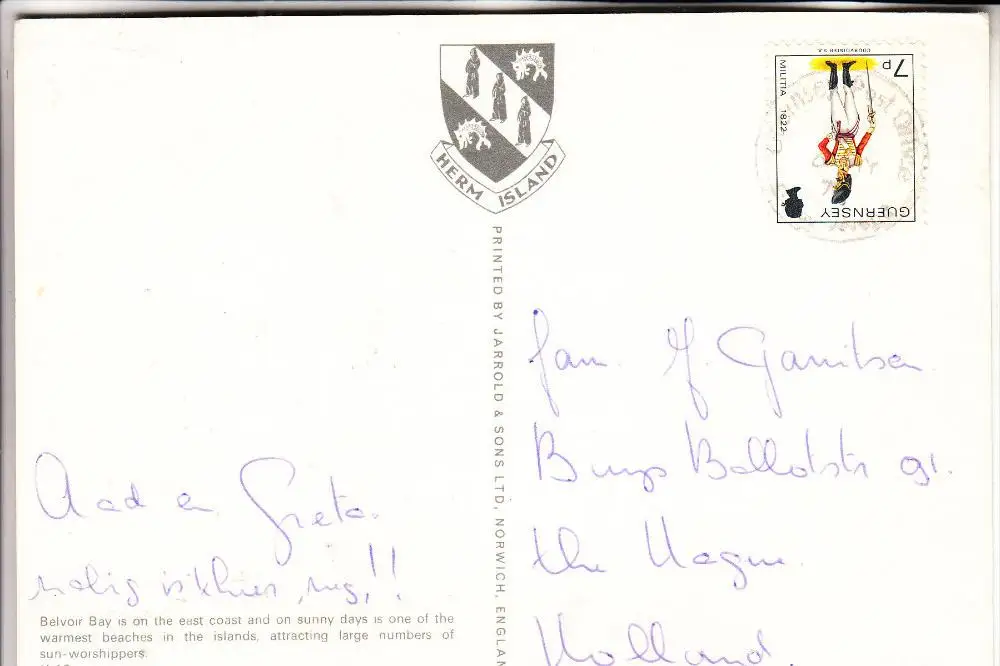 HERM ISLAND
7p
MILITIA 1822
GUERNSEY
PRINTED BY JARROLD & SONS LTD, NORWICH, ENGLAN
fam. J. Garritsen.
Burg Ballotstr 91.
the Hague.
Holland.
Aad en Greta.
is 't hier, !!
Belvoir Bay is on the east coast and on sunny days is one of the
warmest beaches in the islands, attracting large numbers of
sun-worshippers.